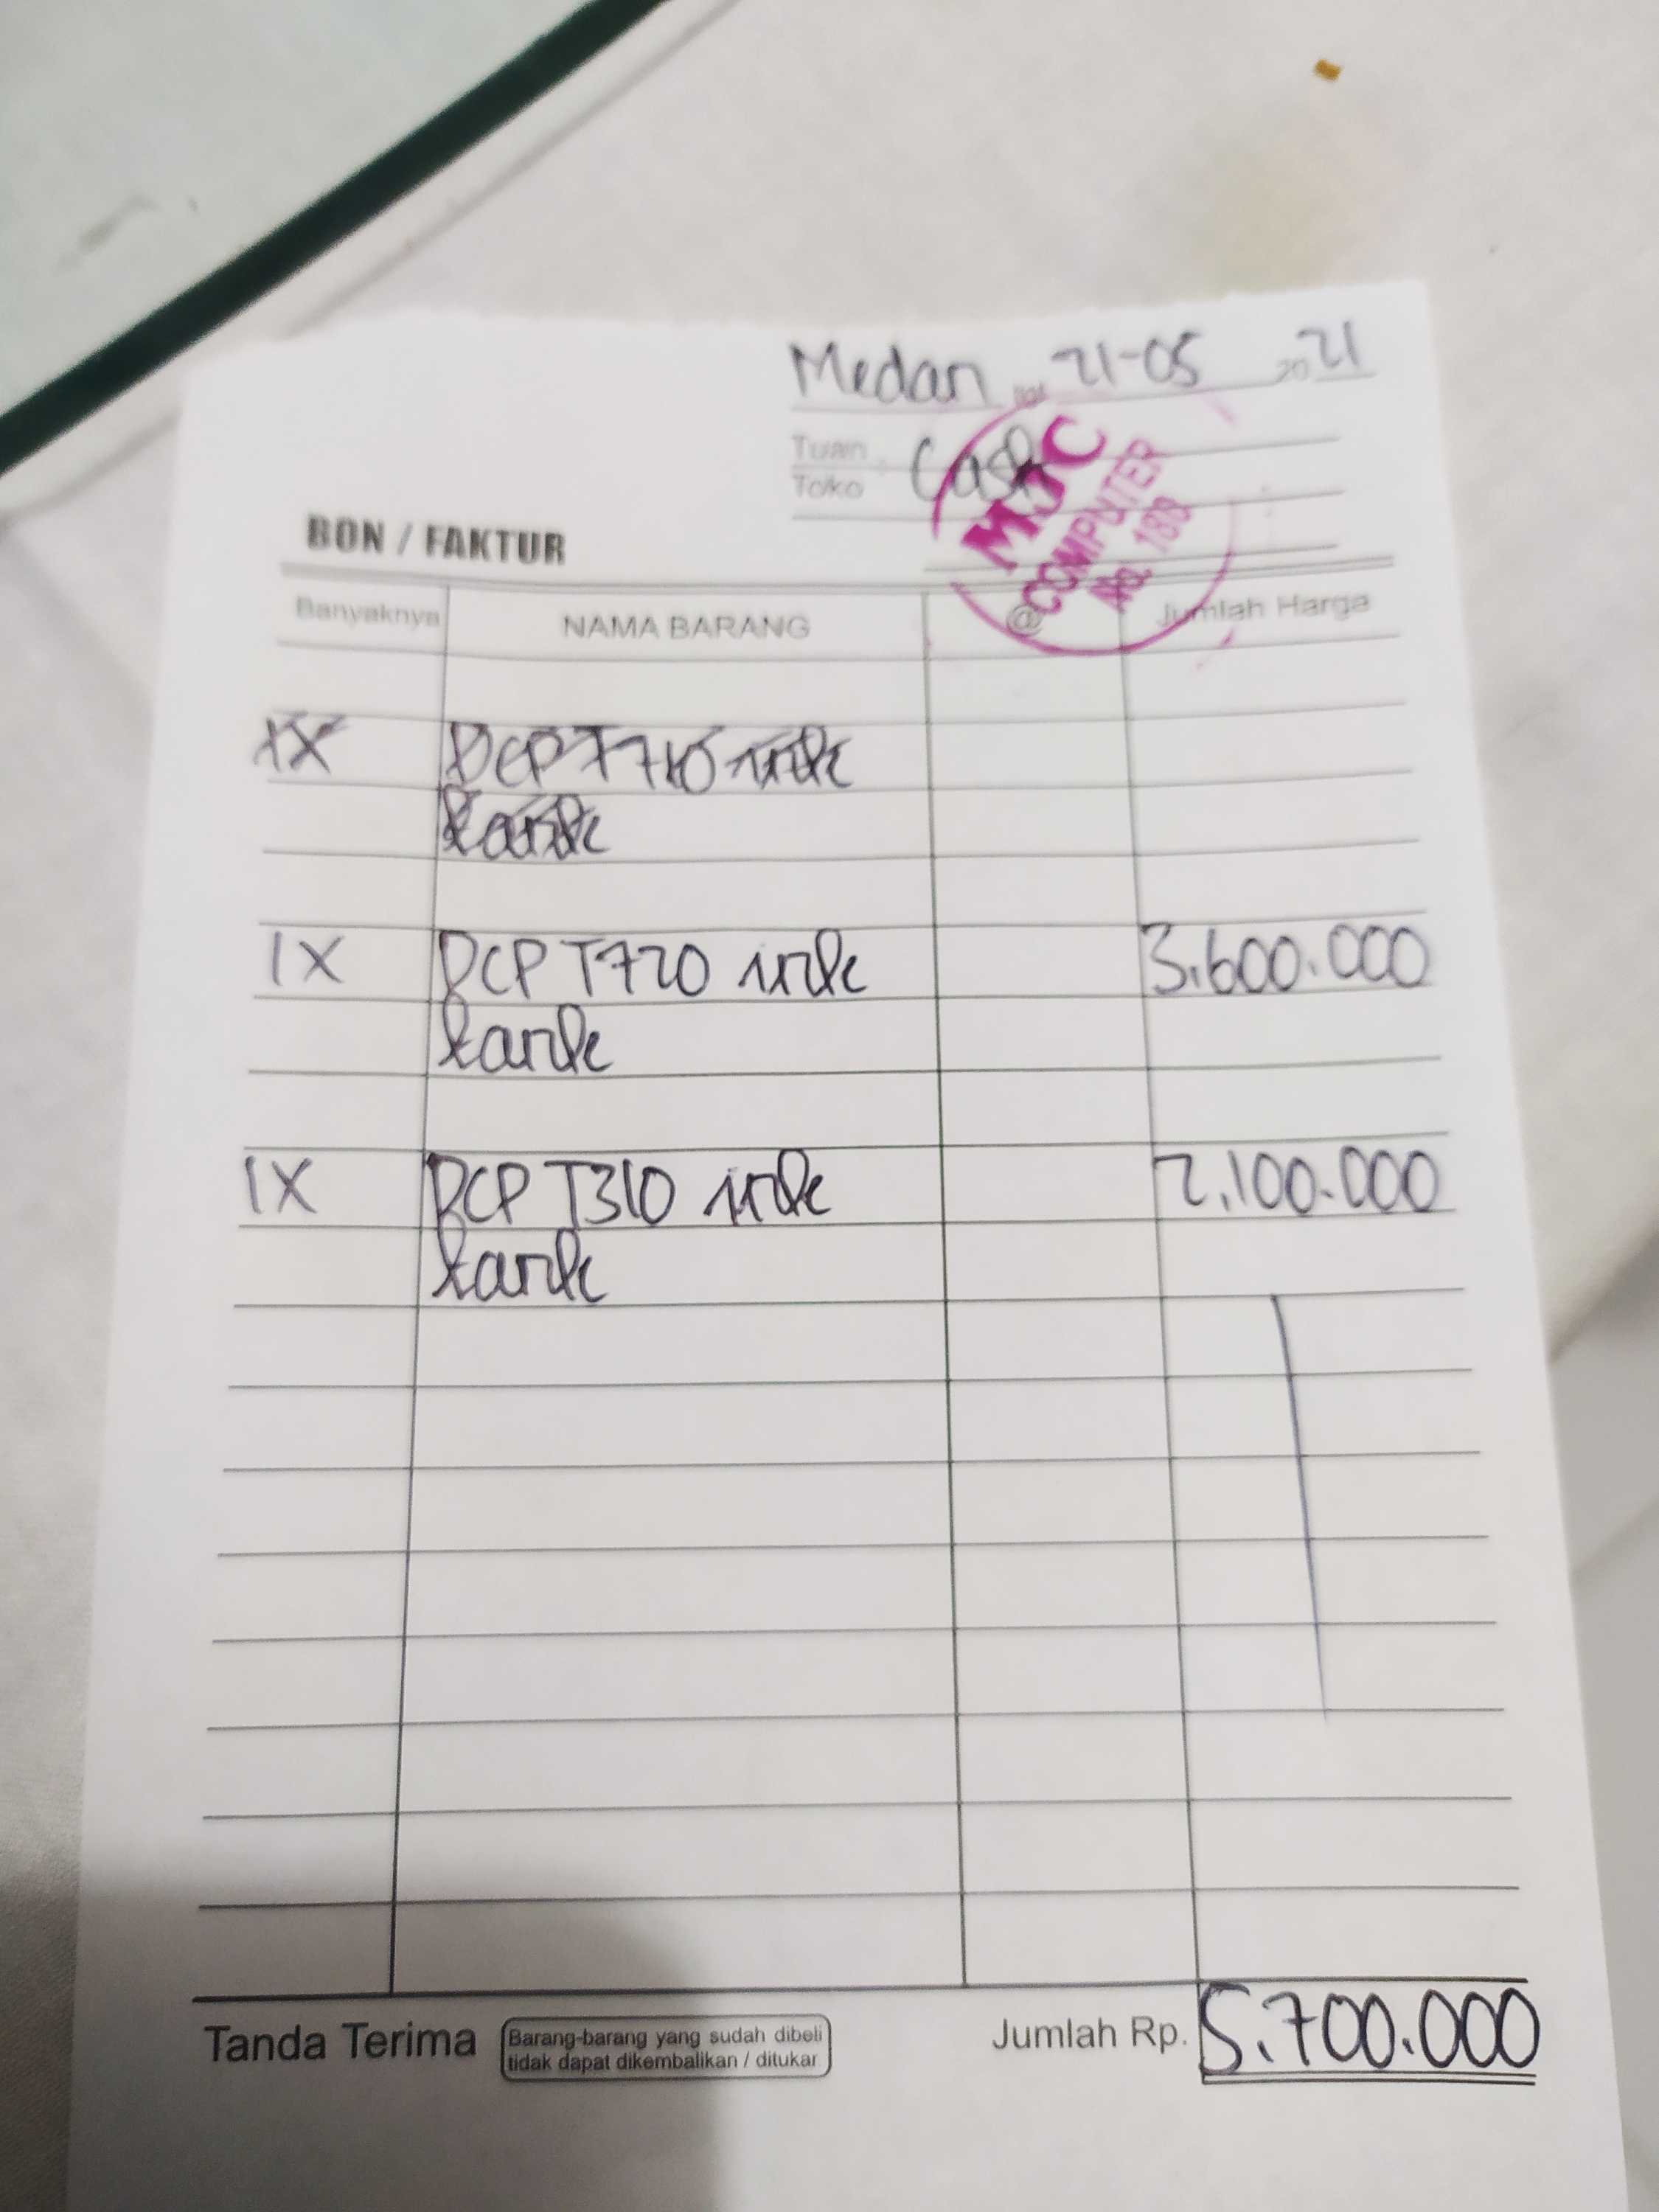 Medan tgl 21-05 2021
Tuan
Toko
Cash
MJC
COMPUTER
No. 188
BON / FAKTUR
Banyaknya NAMA BARANG @ Jumlah Harga
1X DCP T710 ink
tank
1X DCP T720 ink 3.600.000
tank
1X DCP T310 ink 2.100.000
tank
Tanda Terima
Barang-barang yang sudah dibeli
tidak dapat dikembalikan / ditukar
Jumlah Rp. 5.700.000